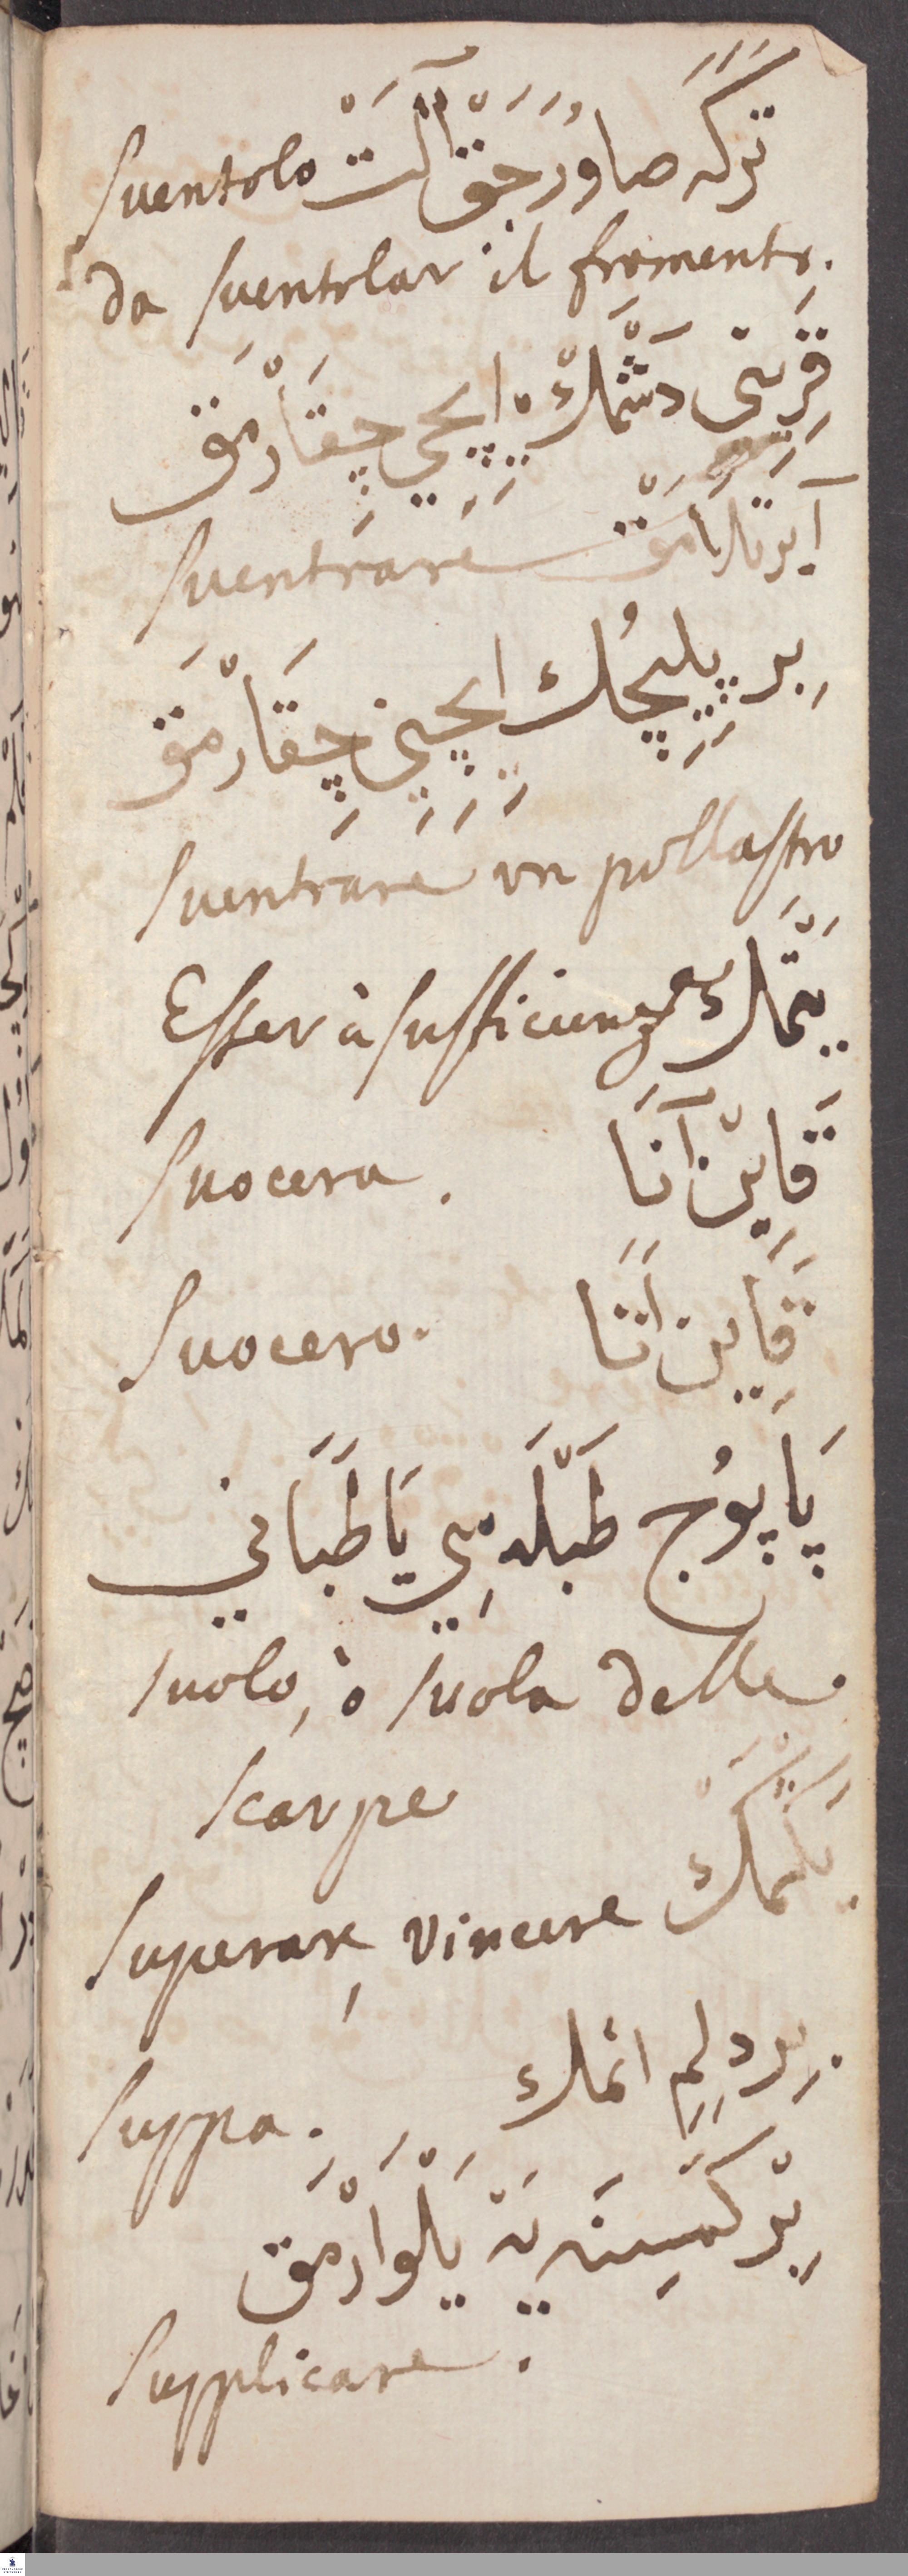 تركه صاوُرَجَقْ آلَتْ Suentolo
da suentolar il fromento.
قَرِنِي دَشْمَكْ ايچي چِقَارْمَق
آيِرتلامَقْ Suentrare
بِر پِلِيچُك ايچِينِ چِقَارْمَق
Suentrare un pollastro
يَتْمَك Esser à sufficienza
قَايِنْ آنَا Suocera.
قَايِن اَتَا Suocero.
پَاپُوج طَبْلَه سِي يَا طَبَانِي
suolo, ò suola delle
scarpe
يَكْمَكْ Superare, vincere
بِر دِلِم اتمك Suppa.
بِرْ كَمْسِنَه يَهْ يَلْوَارْمَق
Supplicare.